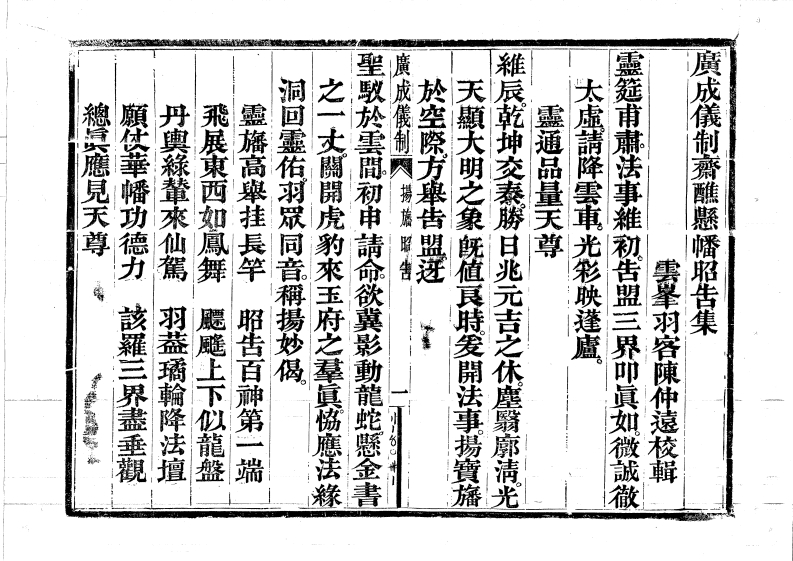 廣成儀制齋醮懸幡昭告集
雲峯羽客陳仲遠校輯
靈筵甫肅。法事維初。告盟三界叩眞如。微誠徹
太虛。請降雲車。光彩映蓬廬。
靈通品量天尊
維辰。乾坤交泰。勝日兆元吉之休。塵翳廓淸。光
天顯大明之象。旣値良時。爰開法事。揚寶旛
於空際。方舉告盟。迓
廣成儀制 揚旛昭告 一
聖馭於雲間。初申請命。欲冀影動龍蛇。懸金書
之一丈。關開虎豹。來玉府之羣眞。恊應法緣
洞回靈佑。羽眾同音。稱揚妙偈。
靈旛高舉挂長竿 昭告百神第一端
飛展東西如鳳舞 飄颺上下似龍盤
丹輿綠輦來仙駕 羽葢璚輪降法壇
願仗華幡功德力 該羅三界盡垂觀
總眞應見天尊